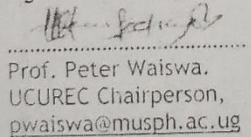 Prof. Peter Waiswa.
UCUREC Chairperson,
pwaiswa@musph.ac.ug